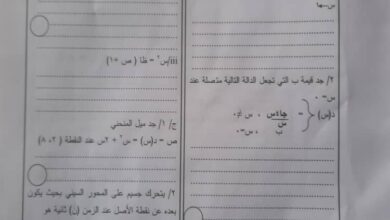 س←ها
٢/ جد قيمة ب التي تجعل الدالة التالية متصلة عند
س=٠
د(س)=
جا٤س
س
، س≠٠
ب ، س=٠
iii/س² = ظا ( ص +١)
ج/ ١/ جد ميل المنحني
ص = د(س) = س² + ٢س عند النقطة (٢، ٨)
٢/ يتحرك جسيم علي المحور السيني بحيث يكون
بعده عن نقطة الأصل عند الزمن (ن) ثانية هو